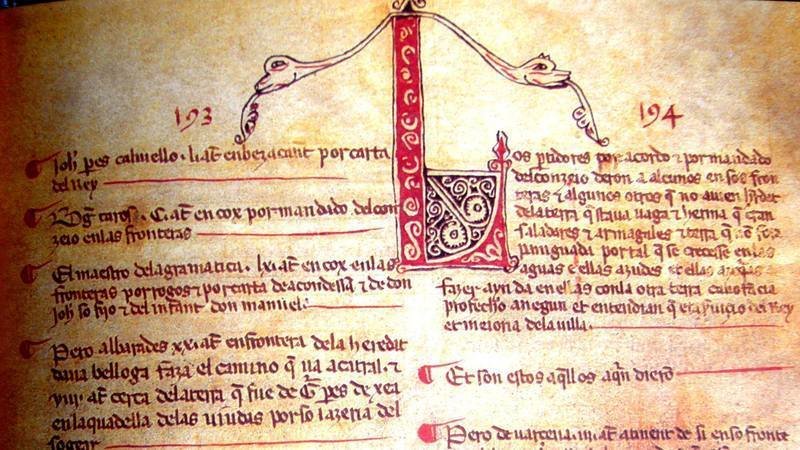 193
Joh̅ p̅es caluiello · li at̅ en benzacant por carta
del rey
D̅g̅ caros · C · at̅ en cox por mandado del con
zeio en las fronteras
El maestro dela gramatica · lxi at̅ en cox en las
fronteras por rogos τ por carta dea condessa τ de don
Joh̅ so fijo τ del infant don manuel
Pero albarades xxi at̅ en frontera dela heredit
belloga faza el camino q̅ ua a catral · τ
viii at̅ cerca dela terra q̅ fue de G̅ p̅es de xea
en la quadella delas uiudas por so iazeria del
sogeir
194
Los p̅tidores por acordo τ por mandado
del conzeio deron a alcunos en sos fron
teras τ algunos otros q̅ no auien
dela terra q̅ staua uaga τ herma q̅ eran
saladares τ armagales τ terra q̅
minguada por tal q̅ se crecesse en las
aguas e ellas azudes
fazer ayuda en ellas con la otra terra
profecho an egun et entendian q̅ del Rey
et meioria dela uilla
Et son estos aq̅llos aq̅n diero̅
Pero de iii at̅ atinent de si en so fronte